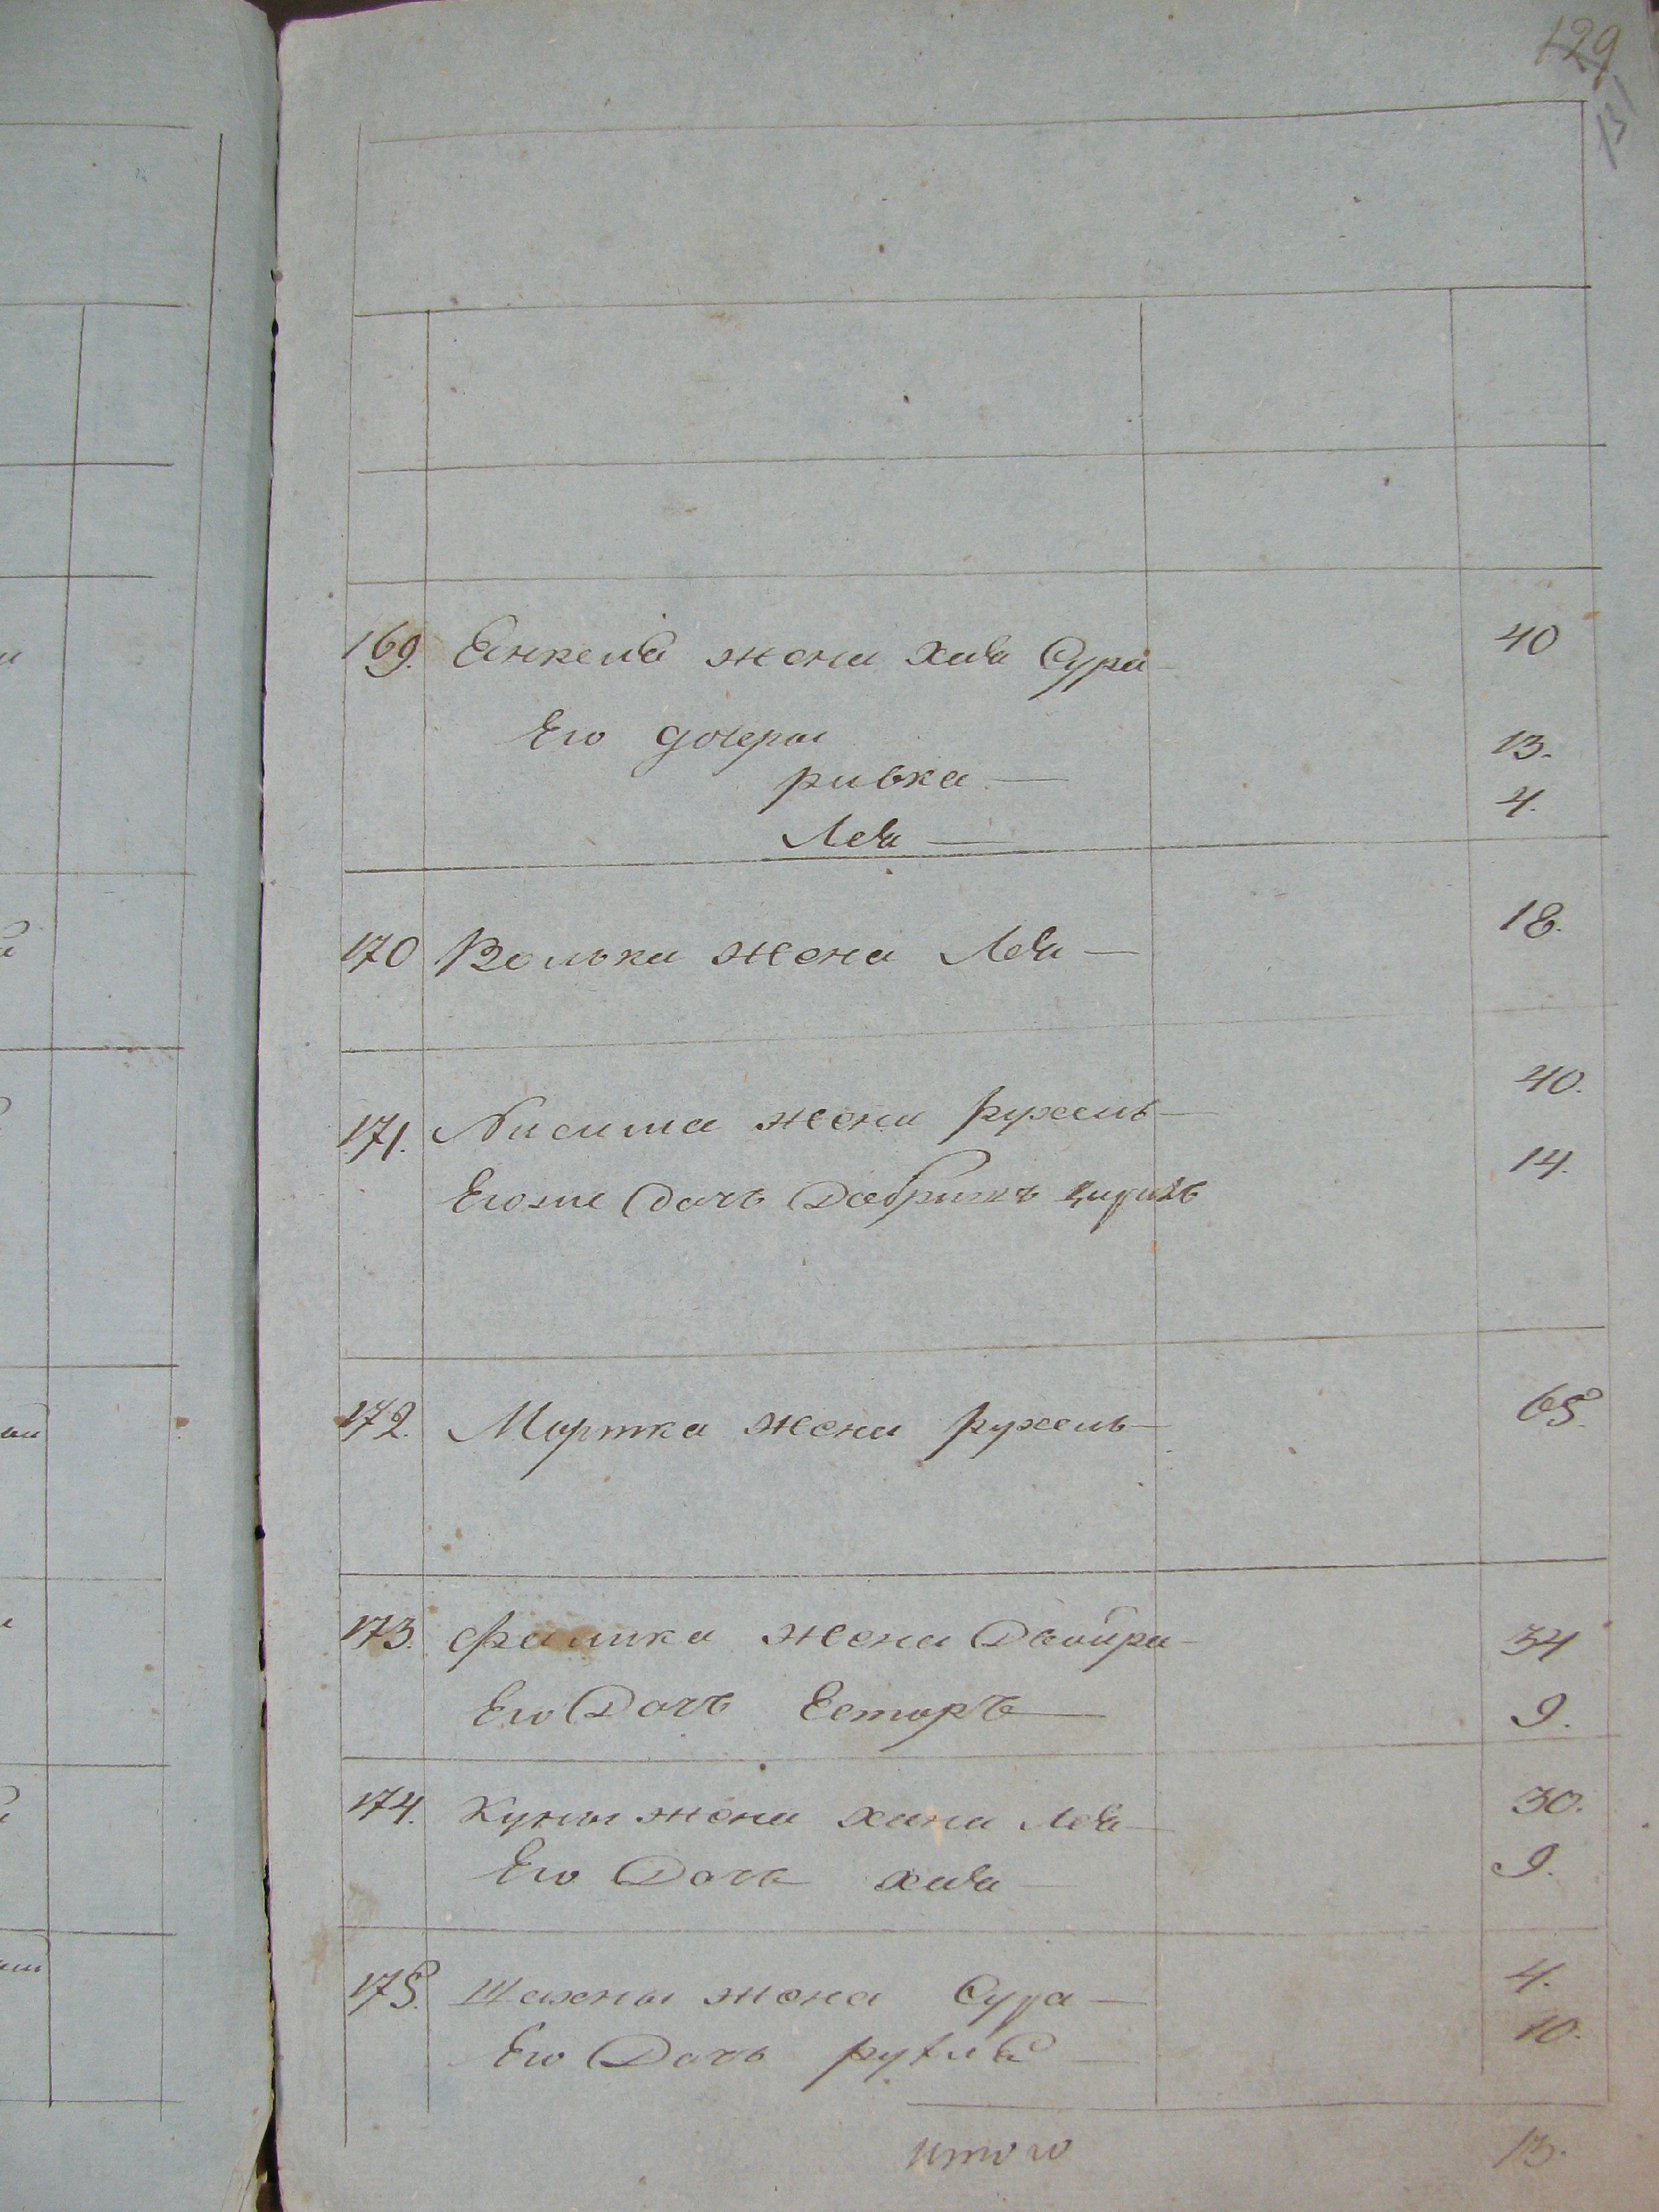 129
131
169. Еанкеля жена Хая Сура — 40
Его дочеры
ривка — 13.
Лея — 4.
170 Волька жена Лея — 18.
171. Нисима жена рухель — 40.
Егоже Дочь Добришъ — 14.
172. Мортка жена рухель — 65.
173. Фалика жена Двойра — 34
Его Дочь Естеръ — 9.
174. Куны жена хана Лея — 30.
Его Дочь хая — 9.
175. Шахны жена Сура — 4.
Его Дочь — 10.
итого 13.